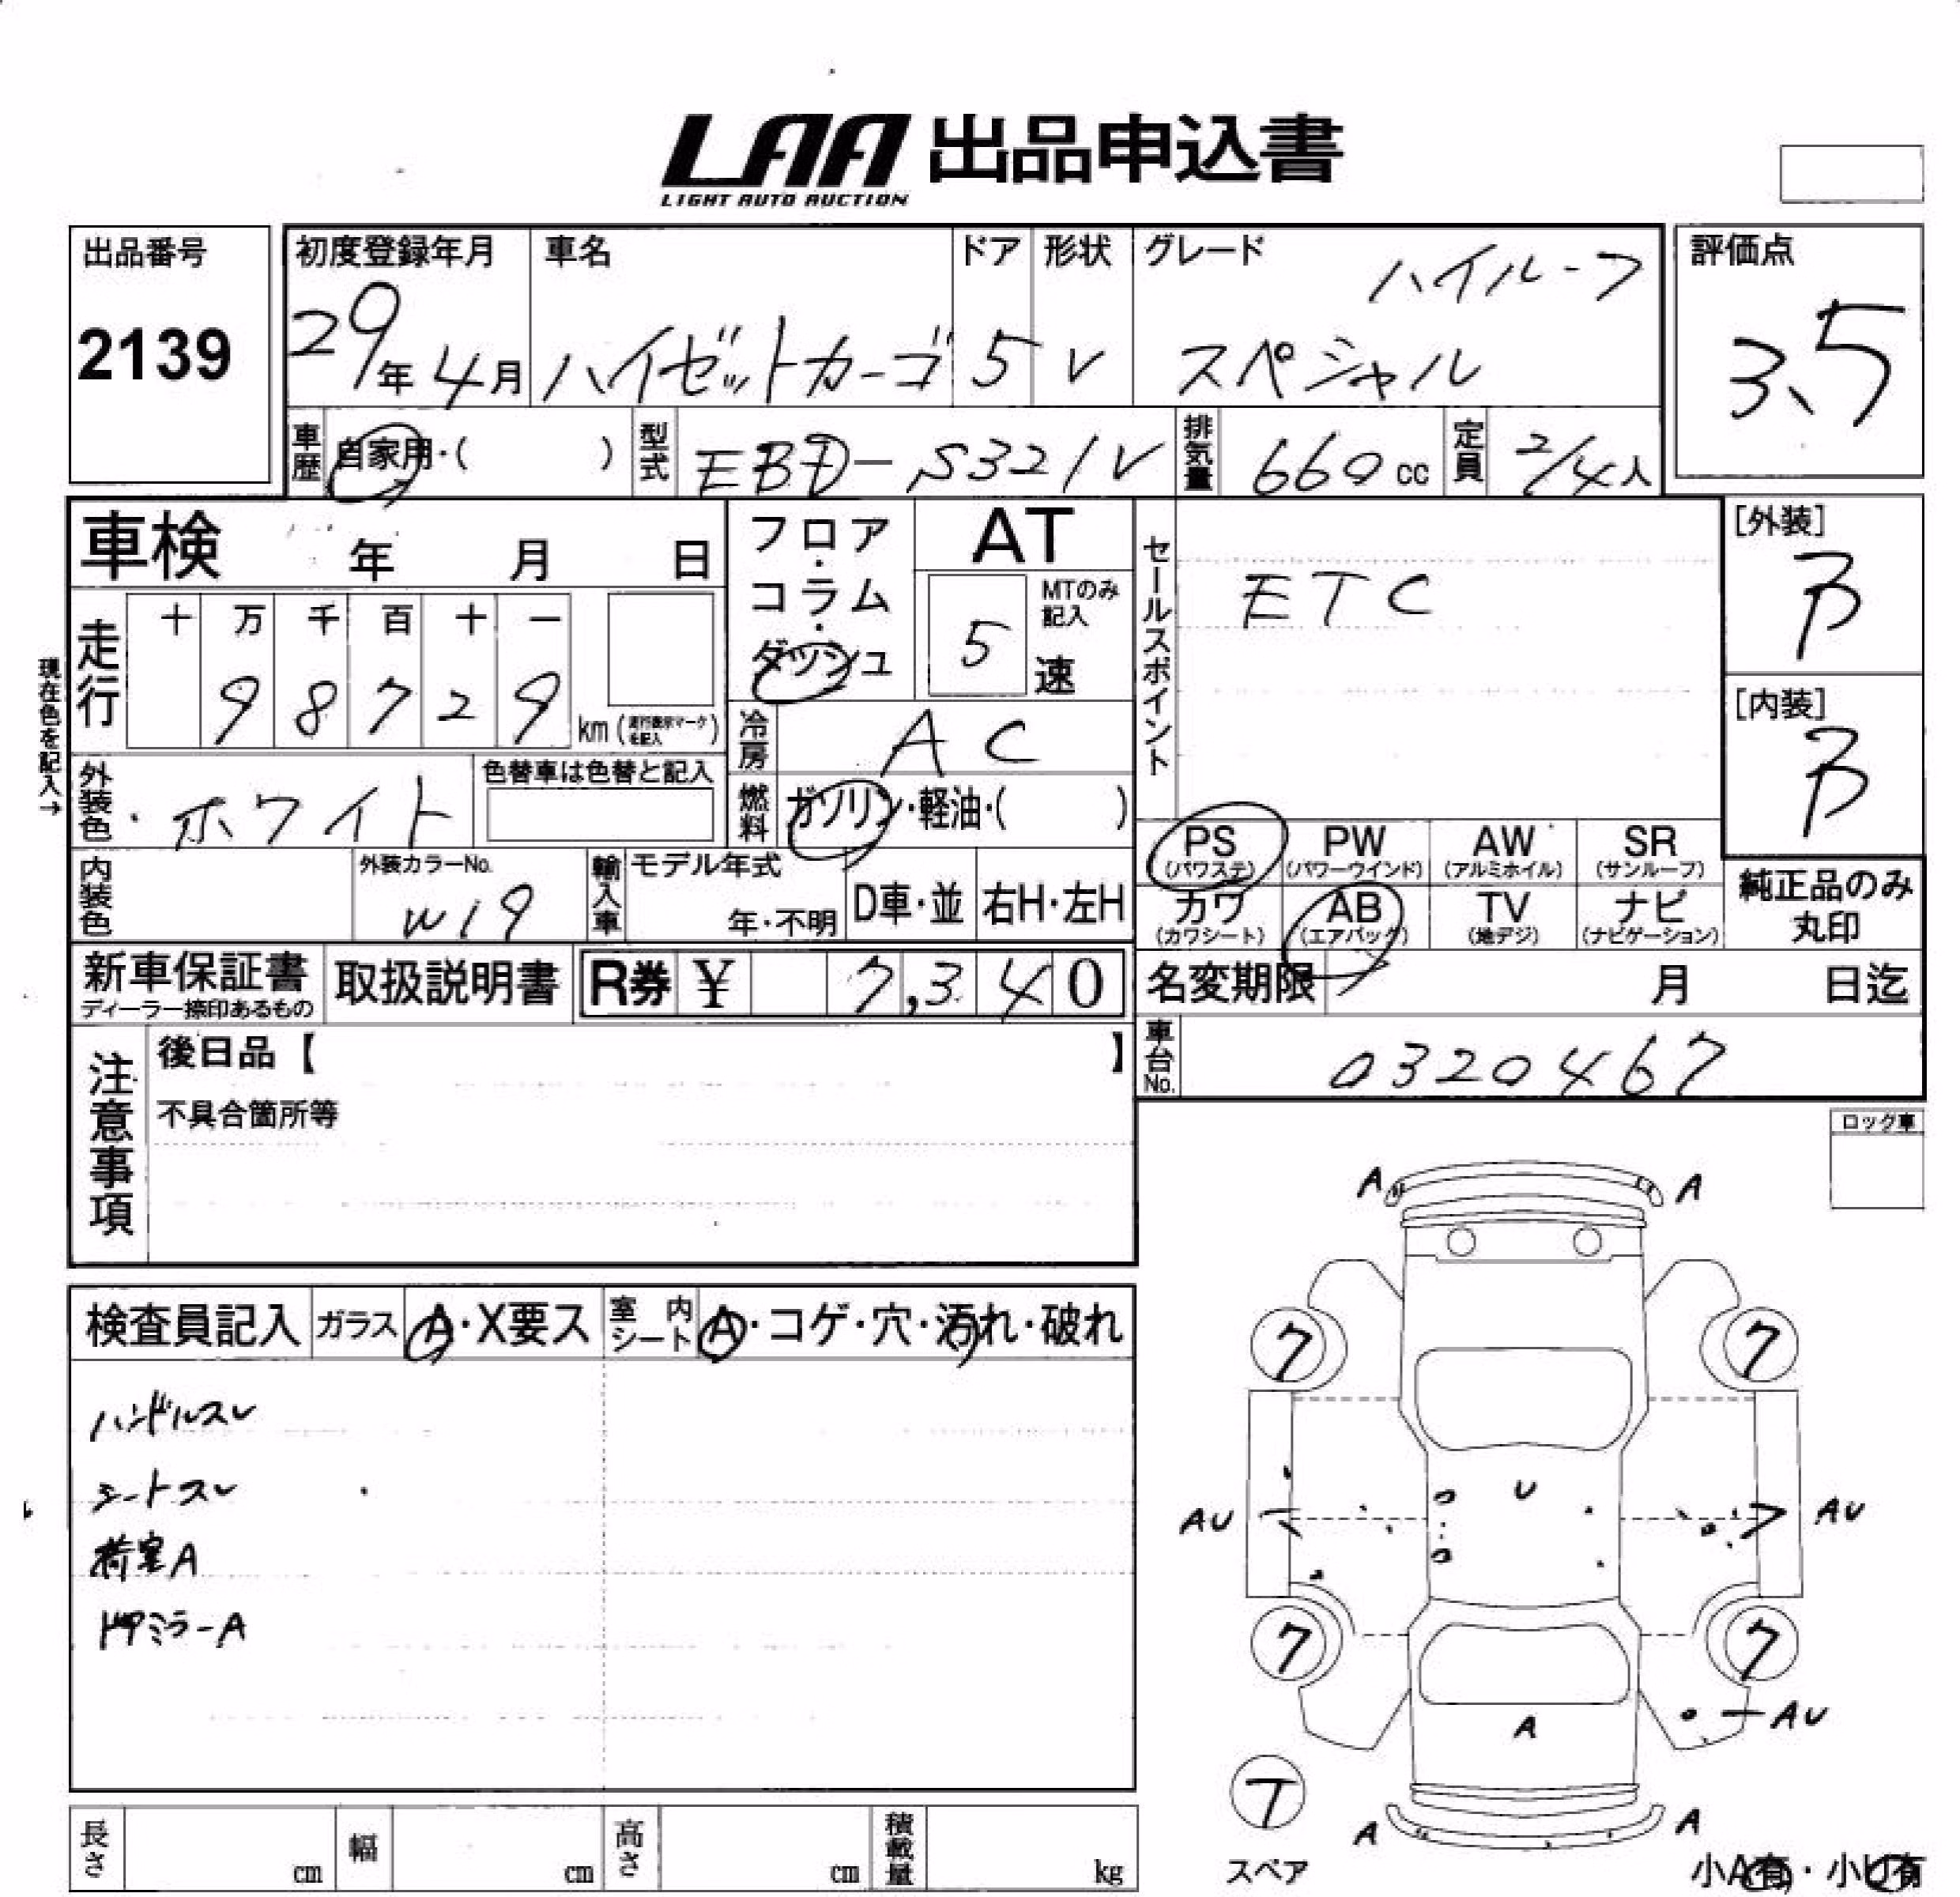 LAA 出品申込書
LIGHT AUTO AUCTION
出品番号
2139
初度登録年月 車名 ドア 形状 グレード
ハイルーフ
29年 4月 ハイゼットカーゴ 5 V スペシャル
評価点
3.5
車歴 自家用・( ) 型式 EBD-S321V 排気量 660cc 定員 2/4人
車検 年 月 日
フロア・コラム・ダッシュ
AT
MTのみ記入
5速
セールスポイント
ETC
[外装]
B
[内装]
B
現在色を記入→
走行
十 万 千 百 十 一
9 8 7 2 9 km(走行表示マークを記入)
冷房 AC
外装色・ホワイト
色替車は色替と記入
燃料 ガソリン・軽油・( )
PS PW AW SR
(パワステ) (パワーウインド) (アルミホイル) (サンルーフ)
カワ AB TV ナビ
(カワシート) (エアバック) (地デジ) (ナビゲーション)
純正品のみ
丸印
内装色
外装カラーNo.
W19
輸入車
モデル年式
年・不明
D車・並 右H・左H
新車保証書
ディーラー捺印あるもの
取扱説明書 R券 ¥ 7,340
名変期限 月 日迄
車台No. 0320467
注意事項
後日品【 】
不具合箇所等
ロック車
検査員記入 ガラス A・X要ス 室内シート A・コゲ・穴・汚れ・破れ
ハンドルスレ
シートスレ
荷室A
ドアミラーA
A A
7 7
U
AU AU
7 7
AU
A
T
A A
スペア
小A有・小U有
長さ cm 幅 cm 高さ cm 積載量 kg